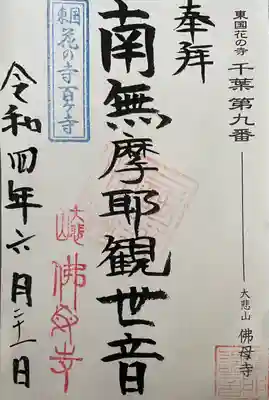 東国花の寺
千葉 第九番
大悲山 佛母寺
奉拝
南無摩耶観世音
東国
花の寺百ヶ寺
大悲山
佛母寺
令和四年六月二十一日